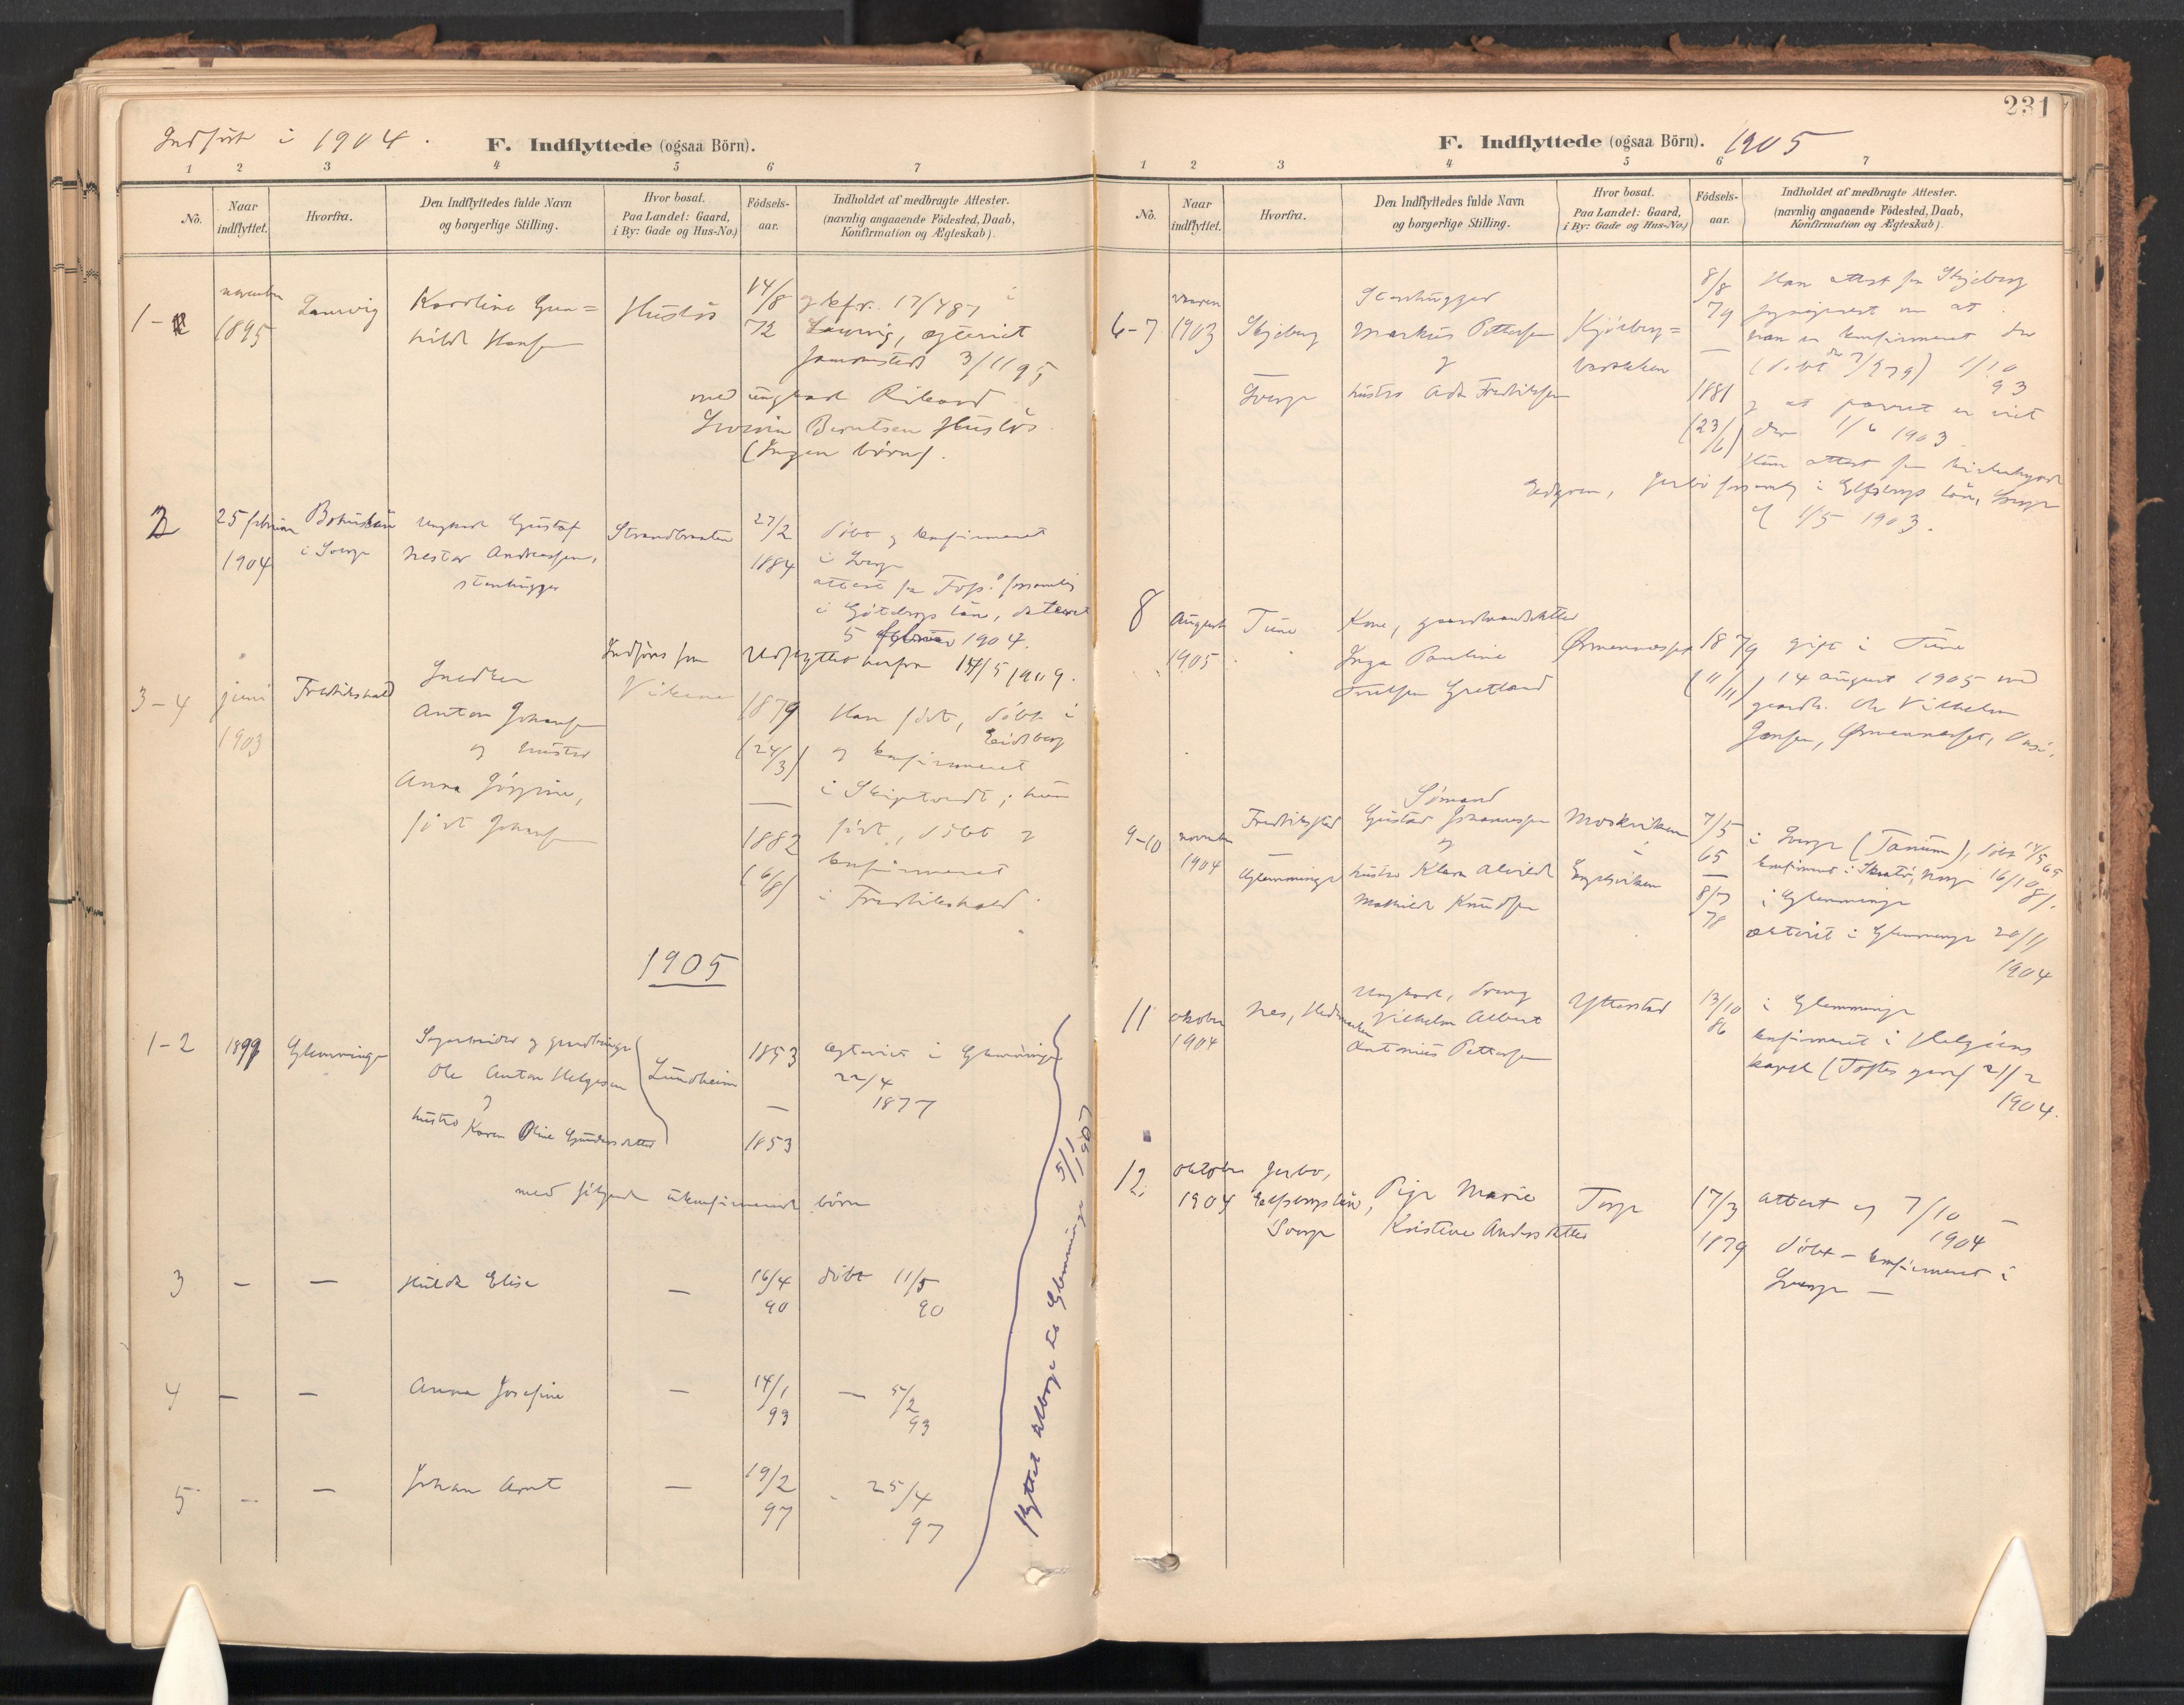 Indført i 1904.
F. Indflyttede (ogsaa Börn).
1 2 3 4 5 6 7
No.
Naar indflyttet.
Hvorfra.
Den Indflyttedes fulde Navn og borgerlige Stilling.
Hvor bosat.
Paa Landet: Gaard,
i By: Gade og Hus-No.)
Födsels-aar.
Indholdet af medbragte Attester.
(navnlig angaaende Födested, Daab,
Konfirmation og Ægteskab).
1-2
november
1895
Laurvig
Karoline Gun=
hild Hansen
Husløs
14/8
72
17/4 87 i
Laurvig, egteviet
sammesteds 3/11 95
med ungkarl Rikard
Berntsen Husløs
(Ingen børn).
2
25 februar
1904
Bohuslän
i Sverge
Ungkarl Gustaf
Nestor Andreassen,
stenhugger
Strandbraaten
27/2
1884
døbt og konfirmeret
i Sverge
attest fra forsamling
i Göteborgs län, dateret
5 februar 1904.
Udflyttet herfra 14/5 1909.
3-4
juni
1903
Fredrikshald
Snedker
Anton Johansen
og hustru
Anna Jørgine,
født Johansen
Vikene
1879
(24/3)
—
1882
(6/8)
Han født, døbt i
Eidsberg
og konfirmeret
i Skiptvedt; hun
født, døbt og
konfirmeret
i Fredrikshald.
1905
1-2
1899
Glemminge
Ole Anton Helgesen
og
hustru Karen Oline Gundersdatter
Lundheim
1853
—
1853
Egteviet i Glemminge
22/4
1877
med følgende ukonfirmerede børn
3 — — Hulda Elise — 16/4 90 døbt 11/5 90
4 — — Anna Josefine — 14/1 93 — 5/2 93
5 — — Johan Arnt — 19/2 97 - 25/4 97
flyttet tilbage til Glemminge 5/1 1907
231
F. Indflyttede (ogsaa Börn). 1905
1 2 3 4 5 6 7
No.
Naar indflyttet.
Hvorfra.
Den Indflyttedes fulde Navn og borgerlige Stilling.
Hvor bosat.
Paa Landet: Gaard,
i By: Gade og Hus-No.)
Födsels-aar.
Indholdet af medbragte Attester.
(navnlig angaaende Födested, Daab,
Konfirmation og Ægteskab).
6-7
vaaren
1903
Skjeberg
—
Sverge
Stenhugger
Markus Pettersen
og
hustru Ada Fredriksen
Kjølberg=
8/8
79
—
1881
(23/6)
Han attest fra Skjeberg
om at
han er konfirmeret der
1/10
93
og at parret er viet
der 1/6 1903.
Hun attest fra
forsamling i Elfsborgs län, Sverge
af 1/5 1903.
8
August
1905
Tune
Kone, gaardmandsdatter
Inga Pauline
Gretland
18 79
(11/11)
gift i Tune
14 august 1905 med
gaardb. Ole Vilhelm
Jensen,
9-10
november
1904
Fredrikstad
—
Glemminge
Sømand
Gustav Johannessen
og
hustru Klara Alvilde
Mathilde Knudsen
Moskviken
i
Engelsviken
7/5
65
—
8/7
78
i Sverge (Tanum), døbt 14/5 65
konfirmeret i Norge 16/10 81.
i Glemminge
ekteviet i Glemminge 20/11
1904
11
oktober
1904
Nes, Hedemarken
Ungkarl, dreng
Vilhelm Albert
Antonius Pettersen
Ytterstad
13/10
86
i Glemminge
konfirmeret i Helgøens
kapel (Toftes gave) 21/2
1904.
12.
oktober
1904
Jerbo,
Elfsborgs län,
Sverge
Pige Marie
Kristine Andersdatter
Torp
17/3
1879
attest af 7/10
1904 —
døbt — konfirmeret i
Sverge —